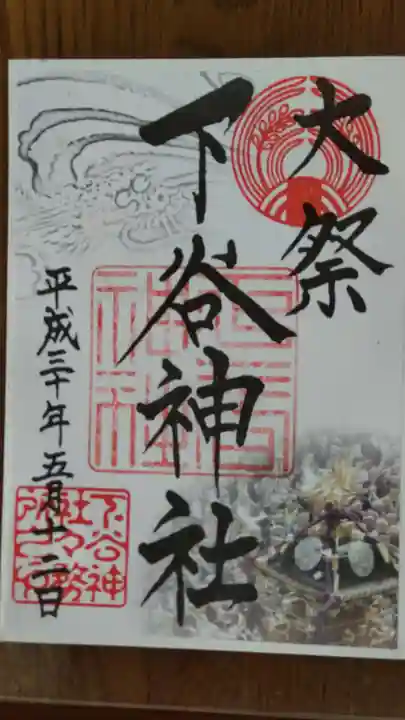 大祭
下谷神社
平成三十年五月十二日
下谷神社
下谷神
社々務
所之印